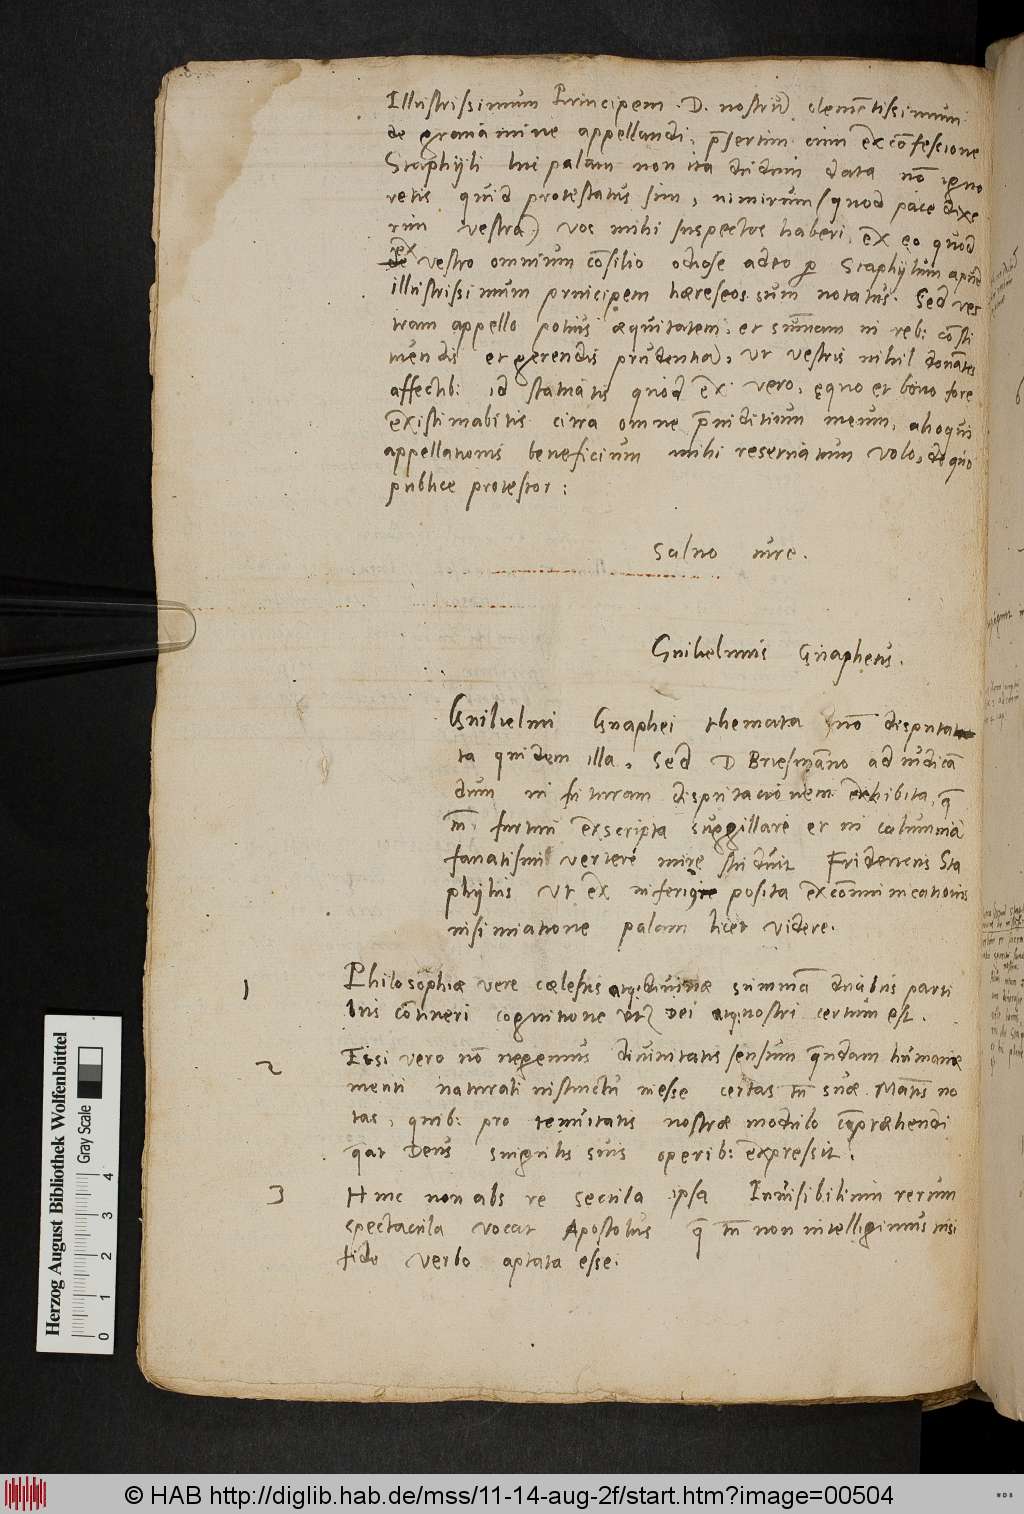 Illustrissimum Principem .D. nostrū clemētissimum
de grauamine appellandi, p̄sertim cum ex cōfessione
Staphyli tui palam non ita dudum data nō igno
retis quid protestatus sim, nimirum (quod pace dixe
rim vestra) vos mihi suspectos haberi, ex eo quod
ex
de vestro omnium cōsilio odiose adeo p Staphylum apud
illustrissimum principem hæreseos sum notatus. Sed ves
tram appello potius æquitatem, et sum̄am in reb: cōsti
tuendis et gerendis prudentiā, vt vestris nihil donātes
affectib: id statuatis quod ex vero, equo et bono fore
existimabitis citra omne p̄iuditium meum, alioqui
appellationis beneficium mihi reseruatum volo, de quo
publice protestor:
Saluo iure.
Guihelmus Gnapheus.
Guihelmi Gnaphei themata nō disputa
ta quidem illa, Sed D Briesmāno ad iudicā
dum in futuram disputationem exhibita, q̄
tn̄ furtim exscripta suggillare et in calumniā
fanatismi vertere mire studuit Fridericus Sta
phylus vt ex inferiore posita excommunicationis
insinuatione palam licet videre.
1 Philosophiæ vere cælestis atq; diuinæ summā duabus parti
bus cōtineri cognitione vtz Dei atq; nostri certum est.
2 Etsi vero nō negemus diuinitatis sensum quendam humanæ
menti naturali instinctu inesse certas tn̄ suæ Matis no
tas, quib: pro tenuitatis nostræ modulo cōpræhendi
q̄at Deus singulis suis operib: expressit.
3 Hinc non abs re secula ipsa Inuisibilium rerum
spectacula vocat Apostolus q̄ tn̄ non intelligimus nisi
fide verbo aptata esse.
Herzog August Bibliothek Wolfenbüttel
Gray Scale
0 1 2 3 4
© HAB http://diglib.hab.de/mss/11-14-aug-2f/start.htm?image=00504